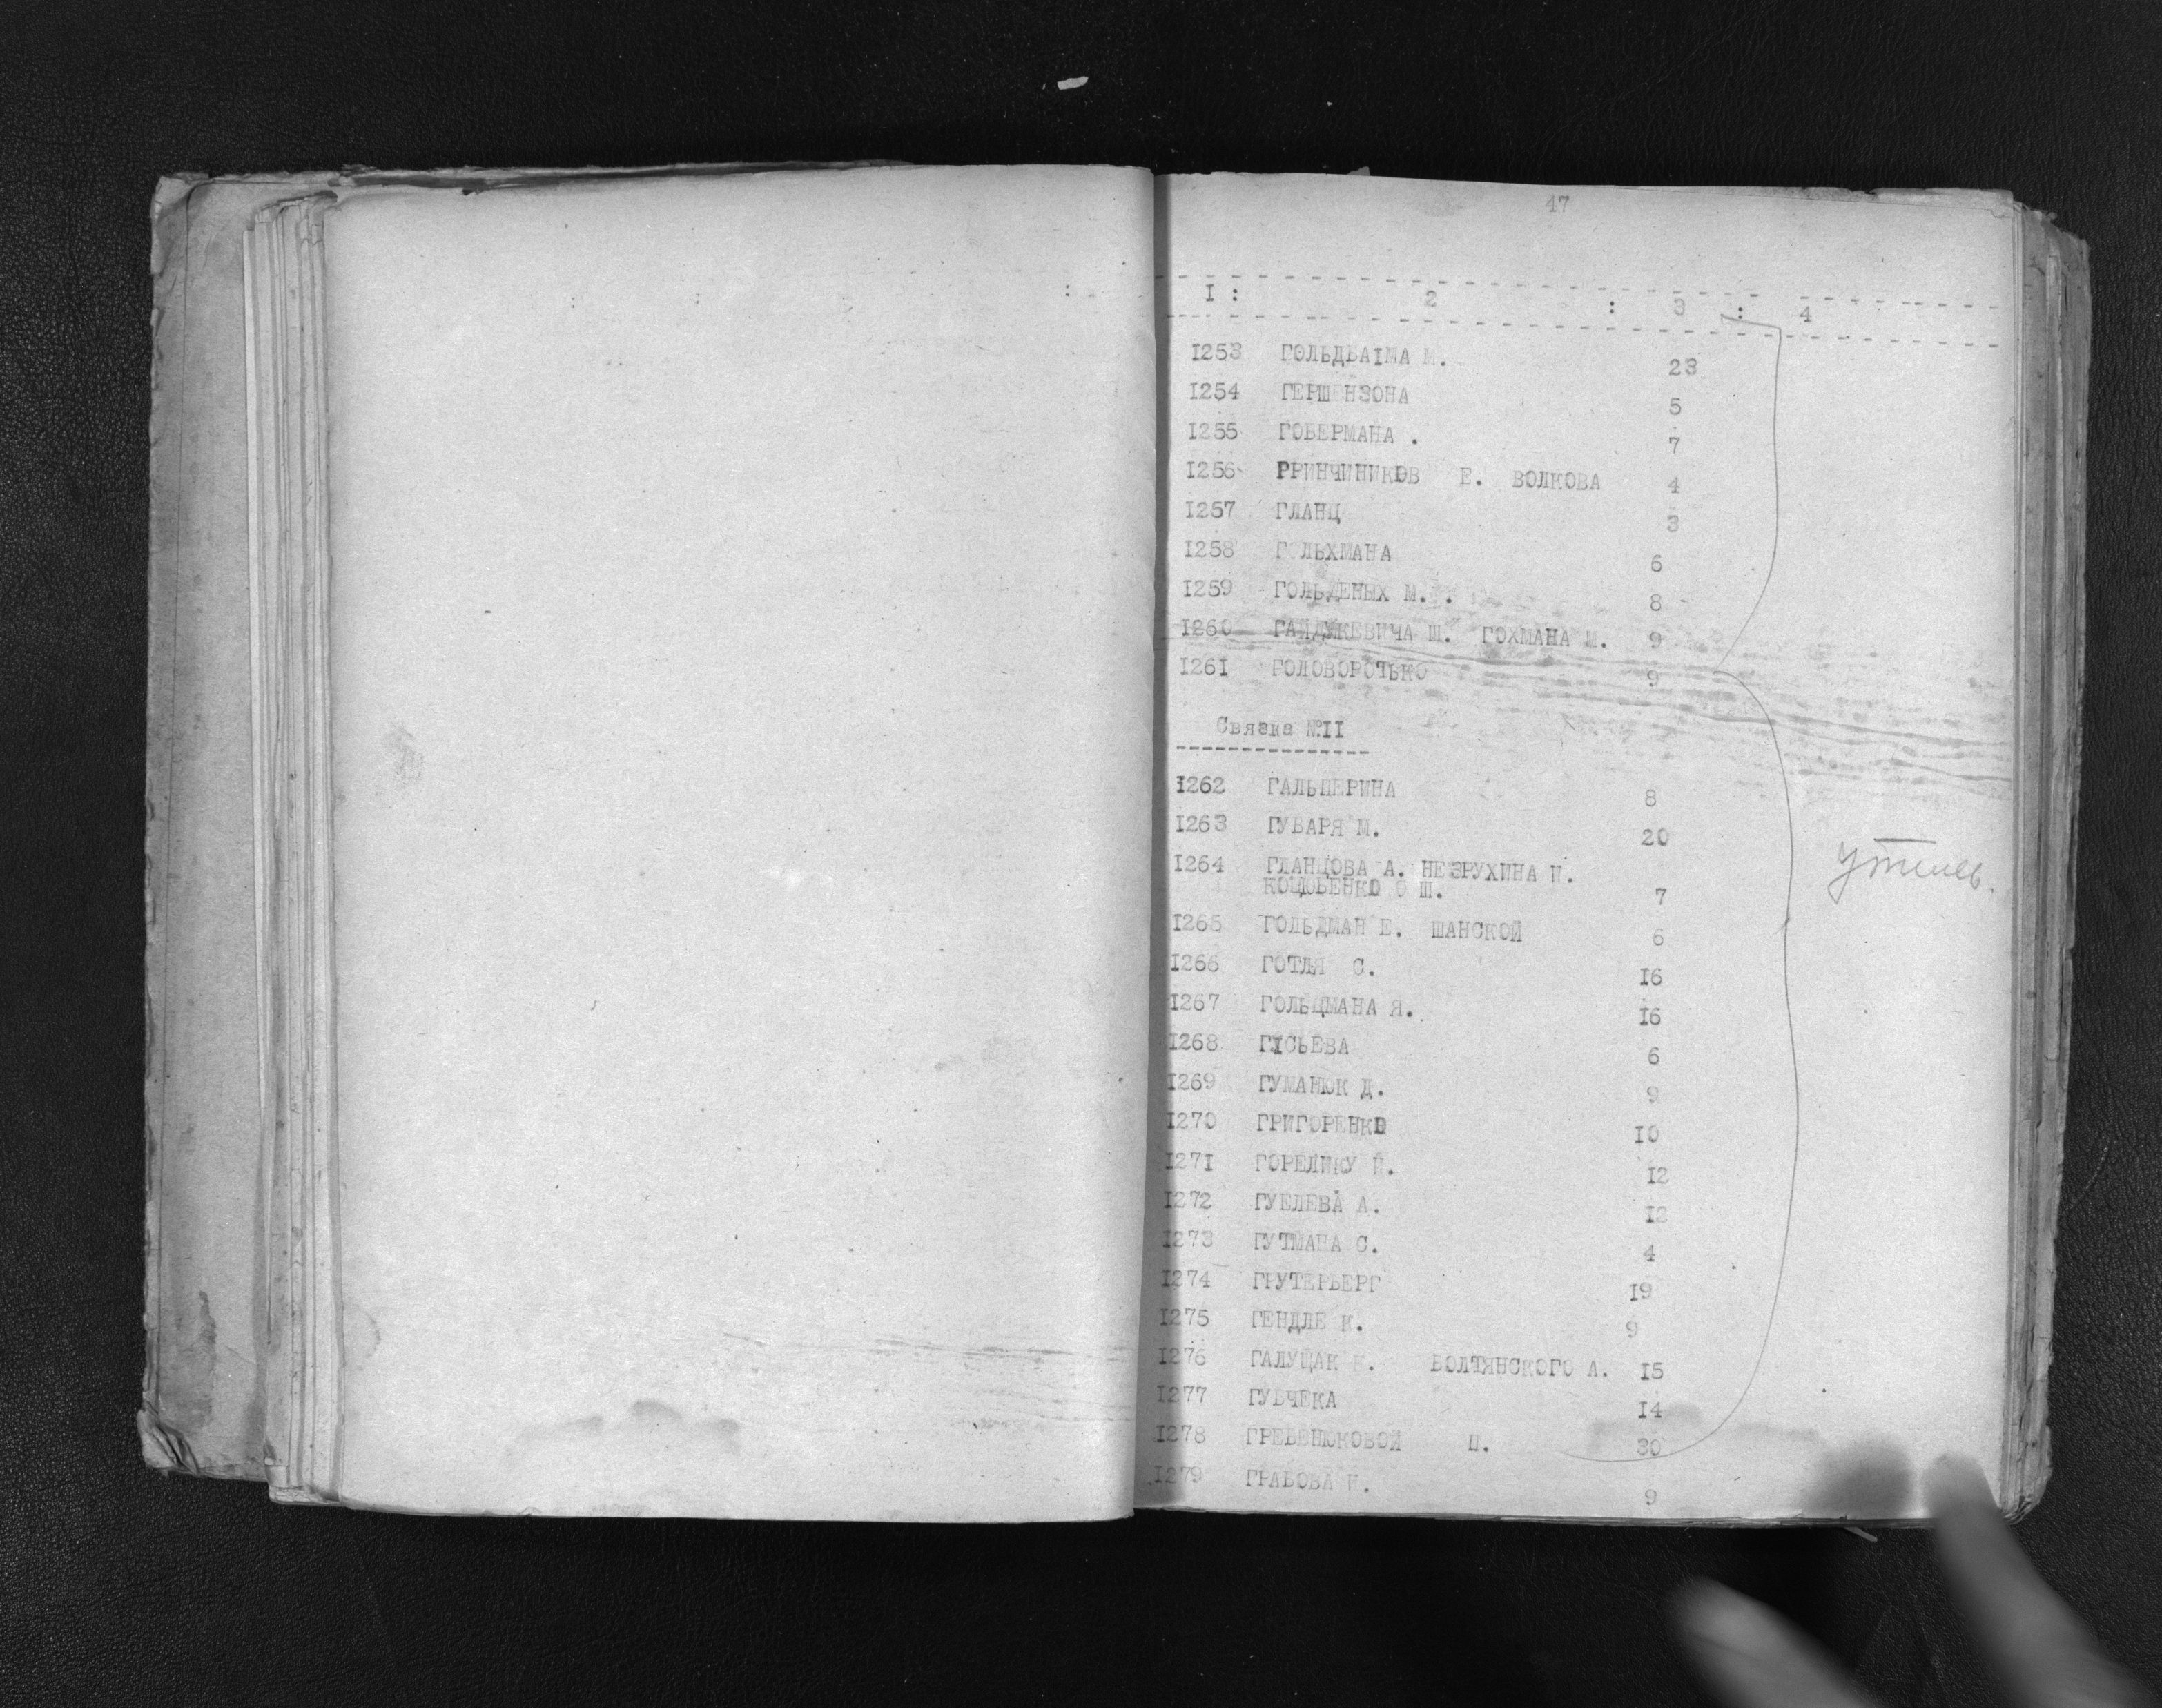 47
I : 2 : 3 : 4
1253 ГОЛЬДВАІМА М. 23
1254 ГЕРШЕНЗОНА 5
1255 ГОБЕРМАНА . 7
1256 ГРИНЧИНИКОВ Е. ВОЛКОВА 4
1257 ГЛАНЦ 3
1258 ГОЛЬХМАНА 6
1259 ГОЛЬДЕНЫХ М. . 8
1260 ГАЙДУКЕВИЧА Ш. ГОХМАНА М. 9
1261 ГОЛОВОРОТЬКО 9
Связка №II
1262 ГАЛЬПЕРИНА 8
1263 ГУБАРЯ М. 20
1264 ГЛАНЦОВА А. НЕЗРУХИНА И.
Ш. 7
1265 ГОЛЬДМАН Е. ШАНСКОЙ 6
1266 ГОТЛЯ С. 16
1267 ГОЛЬЦМАНА Я. 16
1268 ГІСЬЕВА 6
1269 ГУМАНЮК Д. 9
1270 ГРИГОРЕНКО 10
1271 ГОРЕЛИКУ И. 12
1272 ГУБЛЕВА А. 12
1273 ГУТМАНА С. 4
1274 ГРУТЕРБЕРГ 19
1275 ГЕНДЛЕ К. 9
1276 ГАЛУЩАК К. БОЛТЯНСКОГО А. 15
1277 ГУБЧЕКА 14
1278 ГРЕБЕНЮКОВОЙ И. 30
1279 ГРАБОВА Н. 9